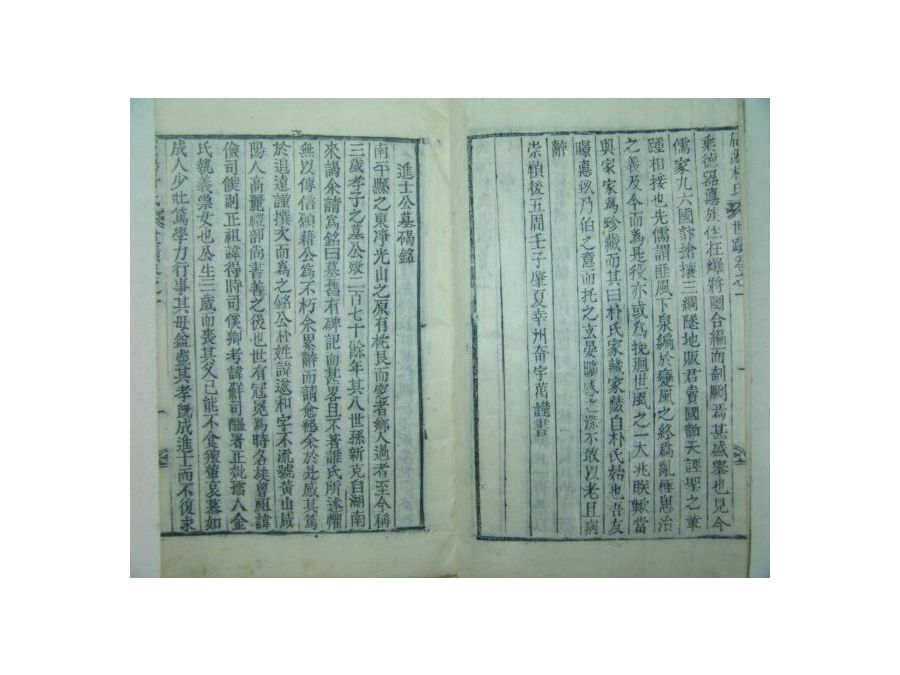 咸陽朴氏 世蹟卷之一
乘德器憙殊佳在
將圖合編而剞劂焉甚盛擧也見今
儒家九六國訌搶攘三綱墜地販君賣國謟天誣聖之輩
踵相接也先儒謂匪風下泉編於變風之終爲亂極思治
之義及今而爲是役亦或爲挽廻世風之一大兆朕歟當
與家家爲珍藏而其曰朴氏家藏家藏自朴氏始也吾友
賜憙玖乃伯之意而托之玄晏曠感之深不敢以老且病
辭
崇禎後五周壬子肇夏幸州奇宇萬謹書
進士公墓碣銘
南平縣之東淨光山之原有枕艮而窆者鄉人過者至今稱
三歲孝子之墓公歿二百七十餘年其八世孫新克自湖南
來謁余請爲銘曰墓舊有碑記而甚畧且不著誰氏所述懼
無以傳信願藉公爲不朽余累辭而請愈懇余於是感其篤
於追遠謹撰次而爲之銘公朴姓諱遂和字不流號黃山咸
陽人高麗禮部尚書善之後也世有冠冕爲時名族曾祖諱
儉司僕副正祖諱得時司僕卿考諱鮮司醞署正妣礪人金
氏執義崇女也公生三歲而喪其父已能不食瘠蠒哀慕如
成人少壯篤學力行事其母益盡其孝旣成進士而不復求